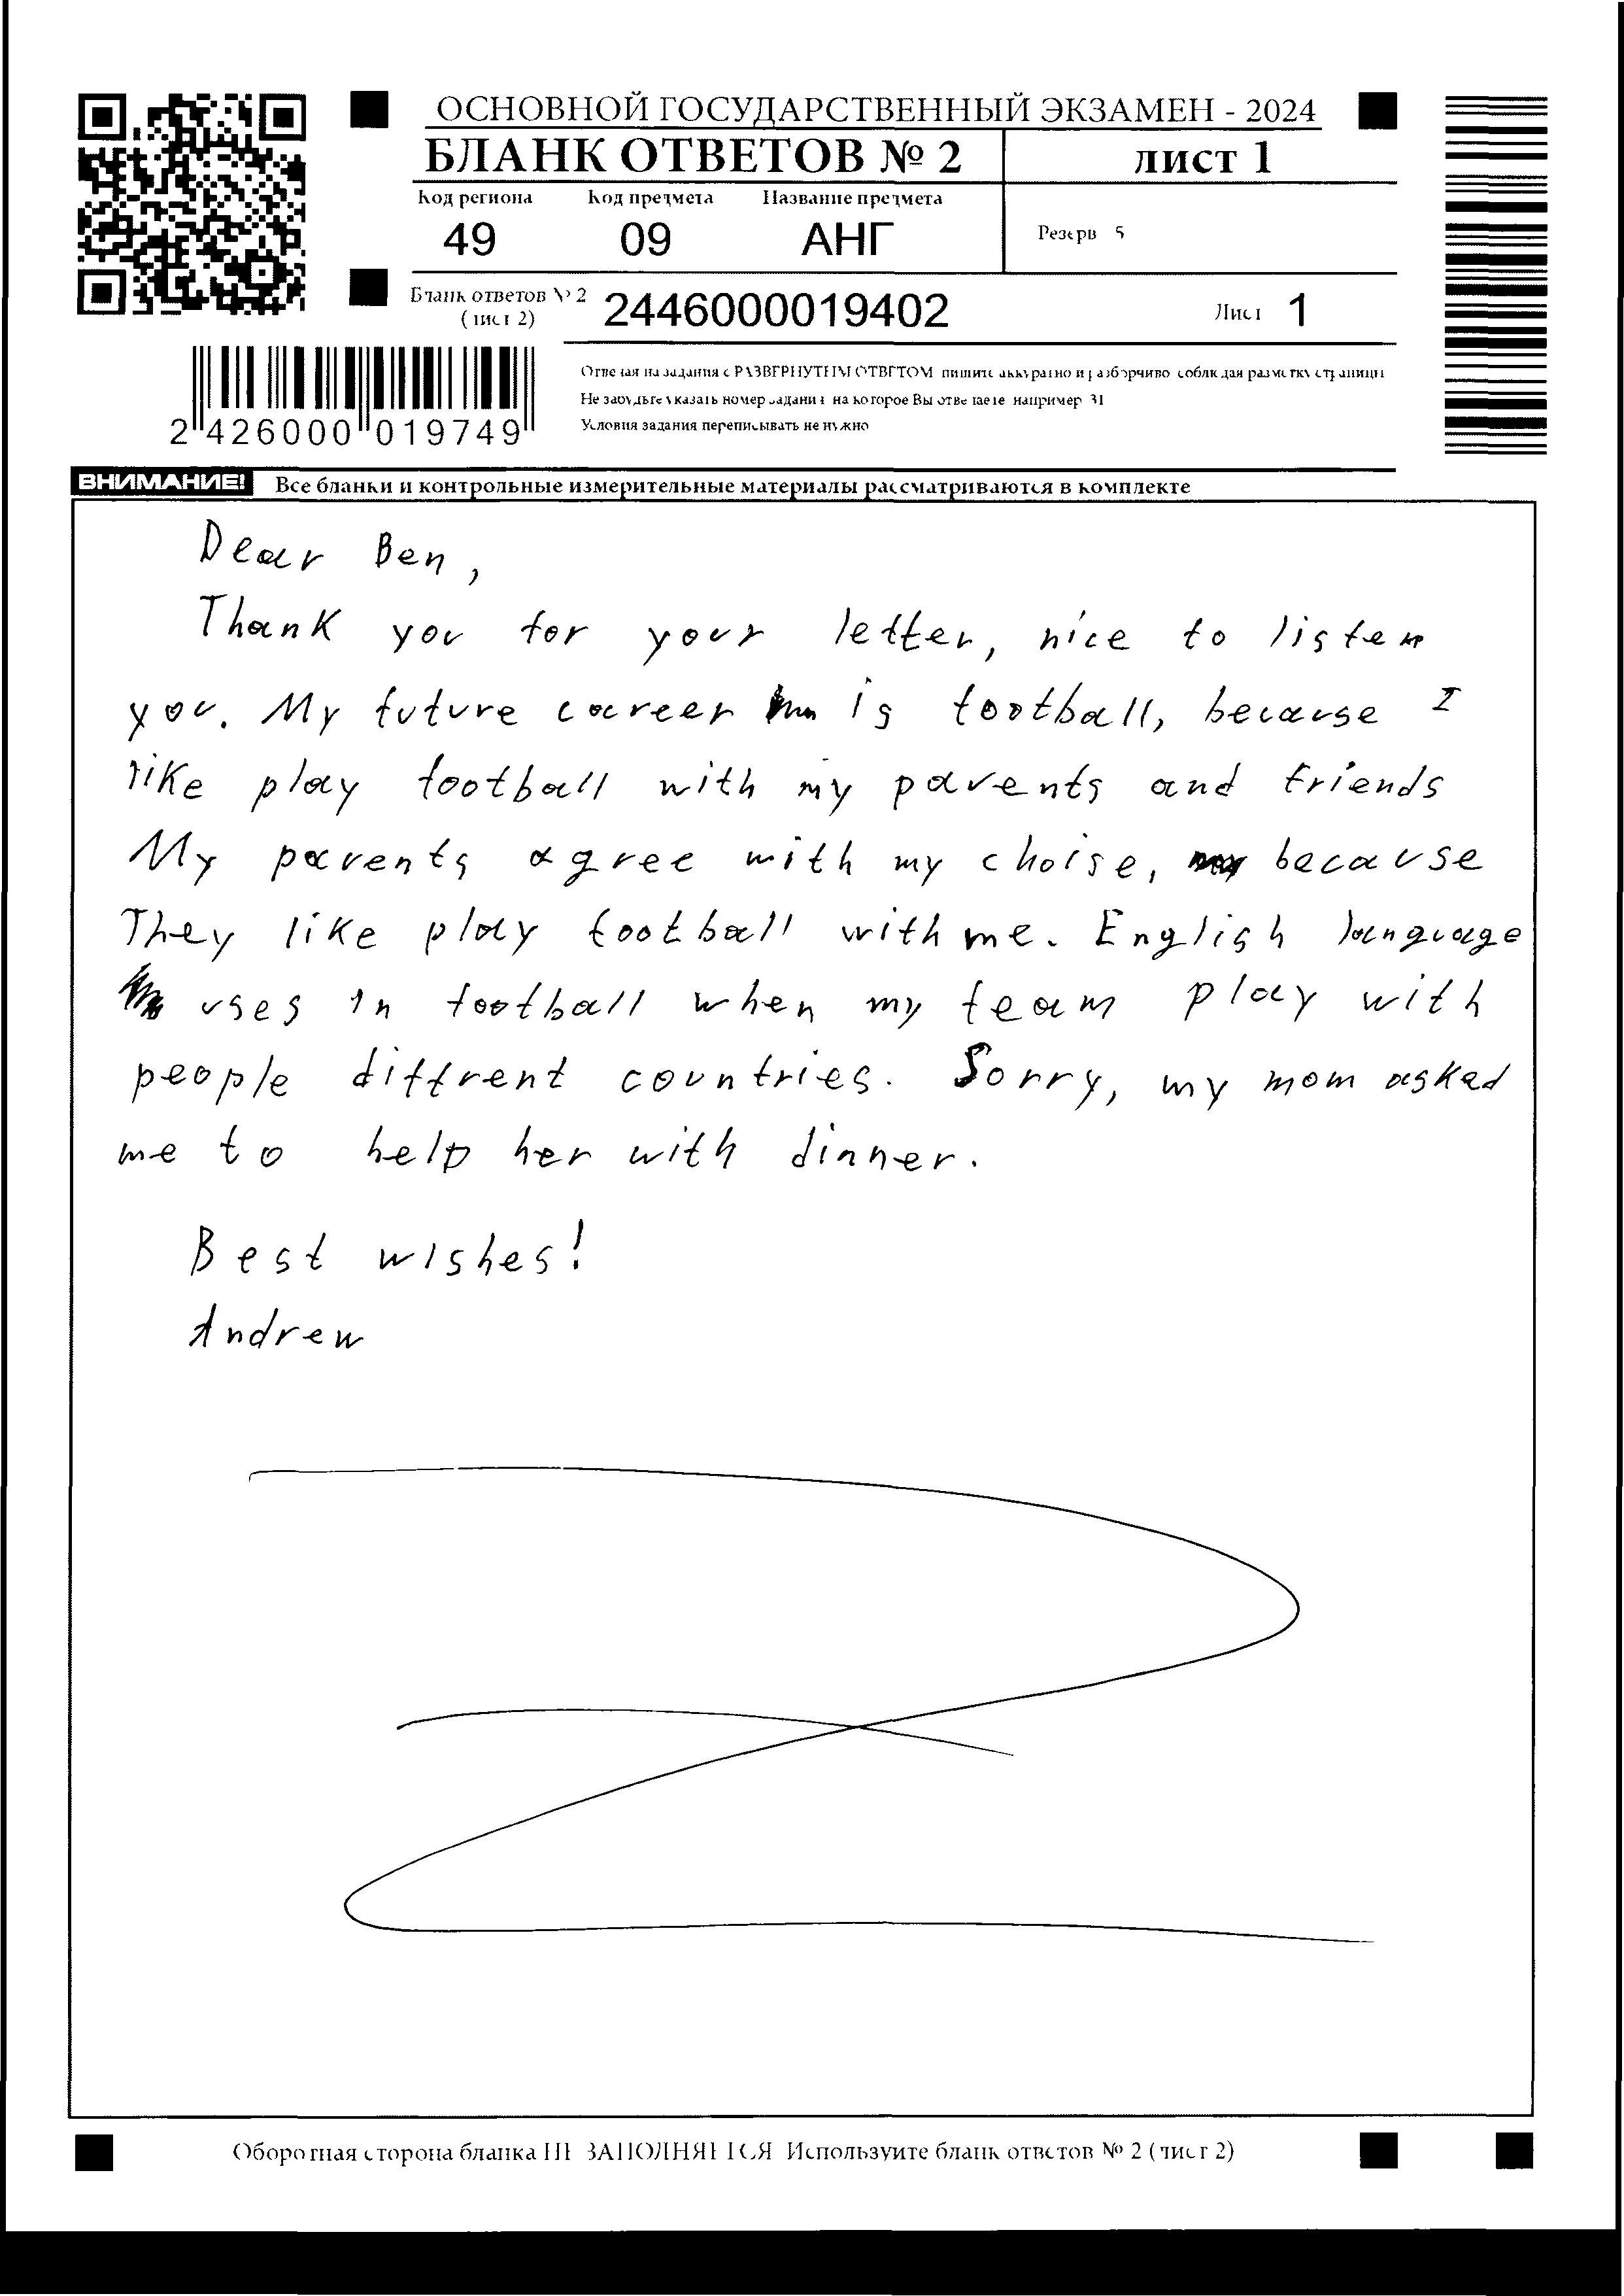 ОСНОВНОЙ ГОСУДАРСТВЕННЫЙ ЭКЗАМЕН - 2024
БЛАНК ОТВЕТОВ № 2
лист 1
Код региона Код предмета Название предмета
49 09 АНГ
Резерв 5
Бланк ответов № 2
(лист 2)
2446000019402
Лист 1
Отвечая на задания с РАЗВЕРНУТЫМ ОТВЕТОМ пишите аккуратно и разборчиво соблюдая разметку страницы
Не забудьте указать номер задания на которое Вы отвечаете например 31
Условия задания переписывать не нужно
2 426000 019749
ВНИМАНИЕ! Все бланки и контрольные измерительные материалы рассматриваются в комплекте
Dear Ben,
Thank you for your letter, nice to listen
you. My future career is football, because I
like play football with my parents and friends
My parents agree with my choise, because
They like play football with me. English language
uses in football when my team play with
people diffrent countries. Sorry, my mom asked
me to help her with dinner.
Best wishes!
Andrew
Оборотная сторона бланка НЕ ЗАПОЛНЯЕТСЯ Используйте бланк ответов № 2 (лист 2)